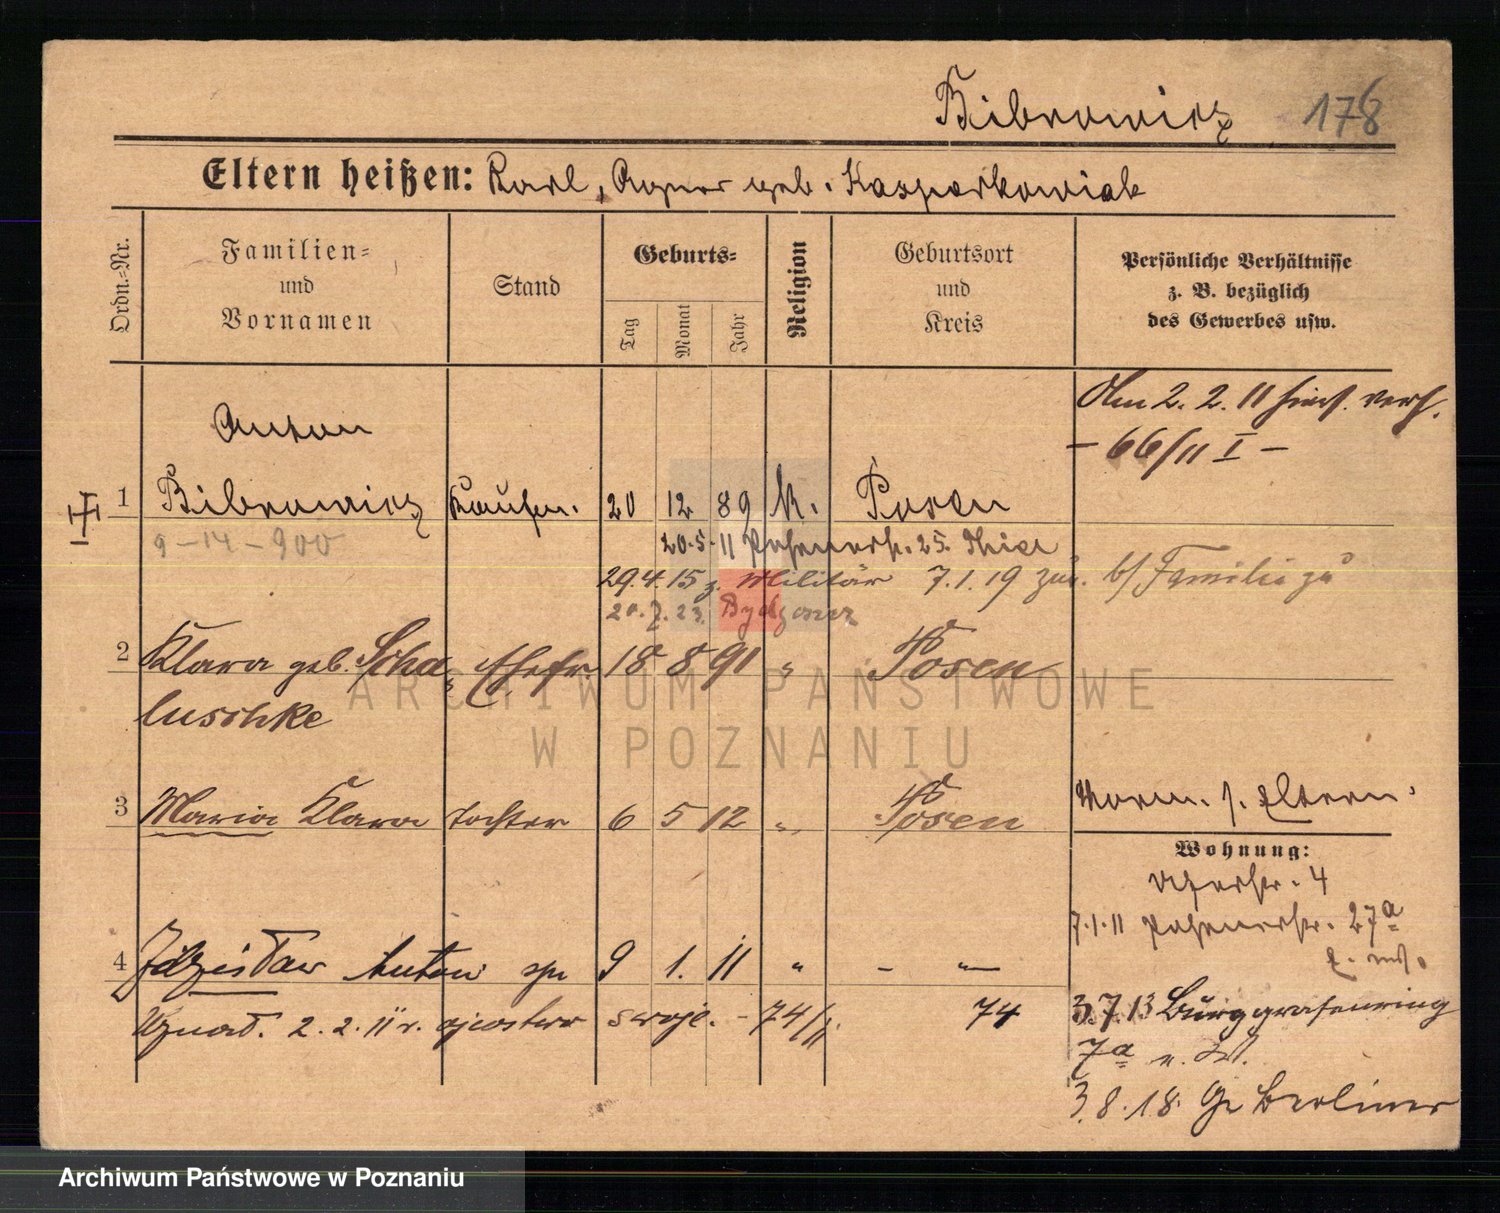 Bibrowicz 178
Eltern heißen: Karl, Agnes geb. Kasperkowiak
Ordn.=Nr.
Familien=
und
Vornamen
Stand
Geburts=
Tag
Monat
Jahr
Religion
Geburtsort
und
Kreis
Persönliche Verhältnisse
z. B. bezüglich
des Gewerbes usw.
Am 2. 2. 11 verh.
– 66/11 I –
Anton
1 Bibrowicz Kaufm. 20 12 89 k. Posen
9–14–900
20.5.11 Posenerstr. 25.
29.4.15 z. Militär 7.1.19 zur. Familie zu
20.7.23. Bydgoszcz
2 Klara geb. Scha= Ehefr. 18 8 91 " Posen
luschke
3 Maria Klara Tochter 6 5 12 " Posen
Vorm. s. Eltern.
Wohnung:
4
7.1.11 Posenerstr. 27a
4 Zdzisław Antoni syn 9 1. 11 " – " –
Uznał. 2. 2. 11 r. ojcostwo swoje. – 74/11. 74
3.7.13 Burggrafenring
7a
3.8.18. Gr Berliner
ARCHIWUM PAŃSTWOWE
W POZNANIU
Archiwum Państwowe w Poznaniu